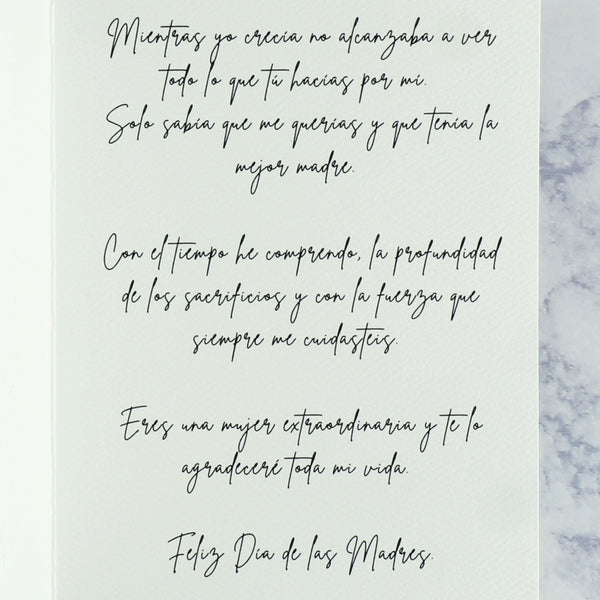 Mientras yo crecía no alcanzaba a ver
todo lo que tú hacías por mí.
Solo sabía que me querías y que tenía la
mejor madre.
Con el tiempo he comprendo, la profundidad
de los sacrificios y con la fuerza que
siempre me cuidasteis.
Eres una mujer extraordinaria y te lo
agradeceré toda mi vida.
Feliz Día de las Madres.